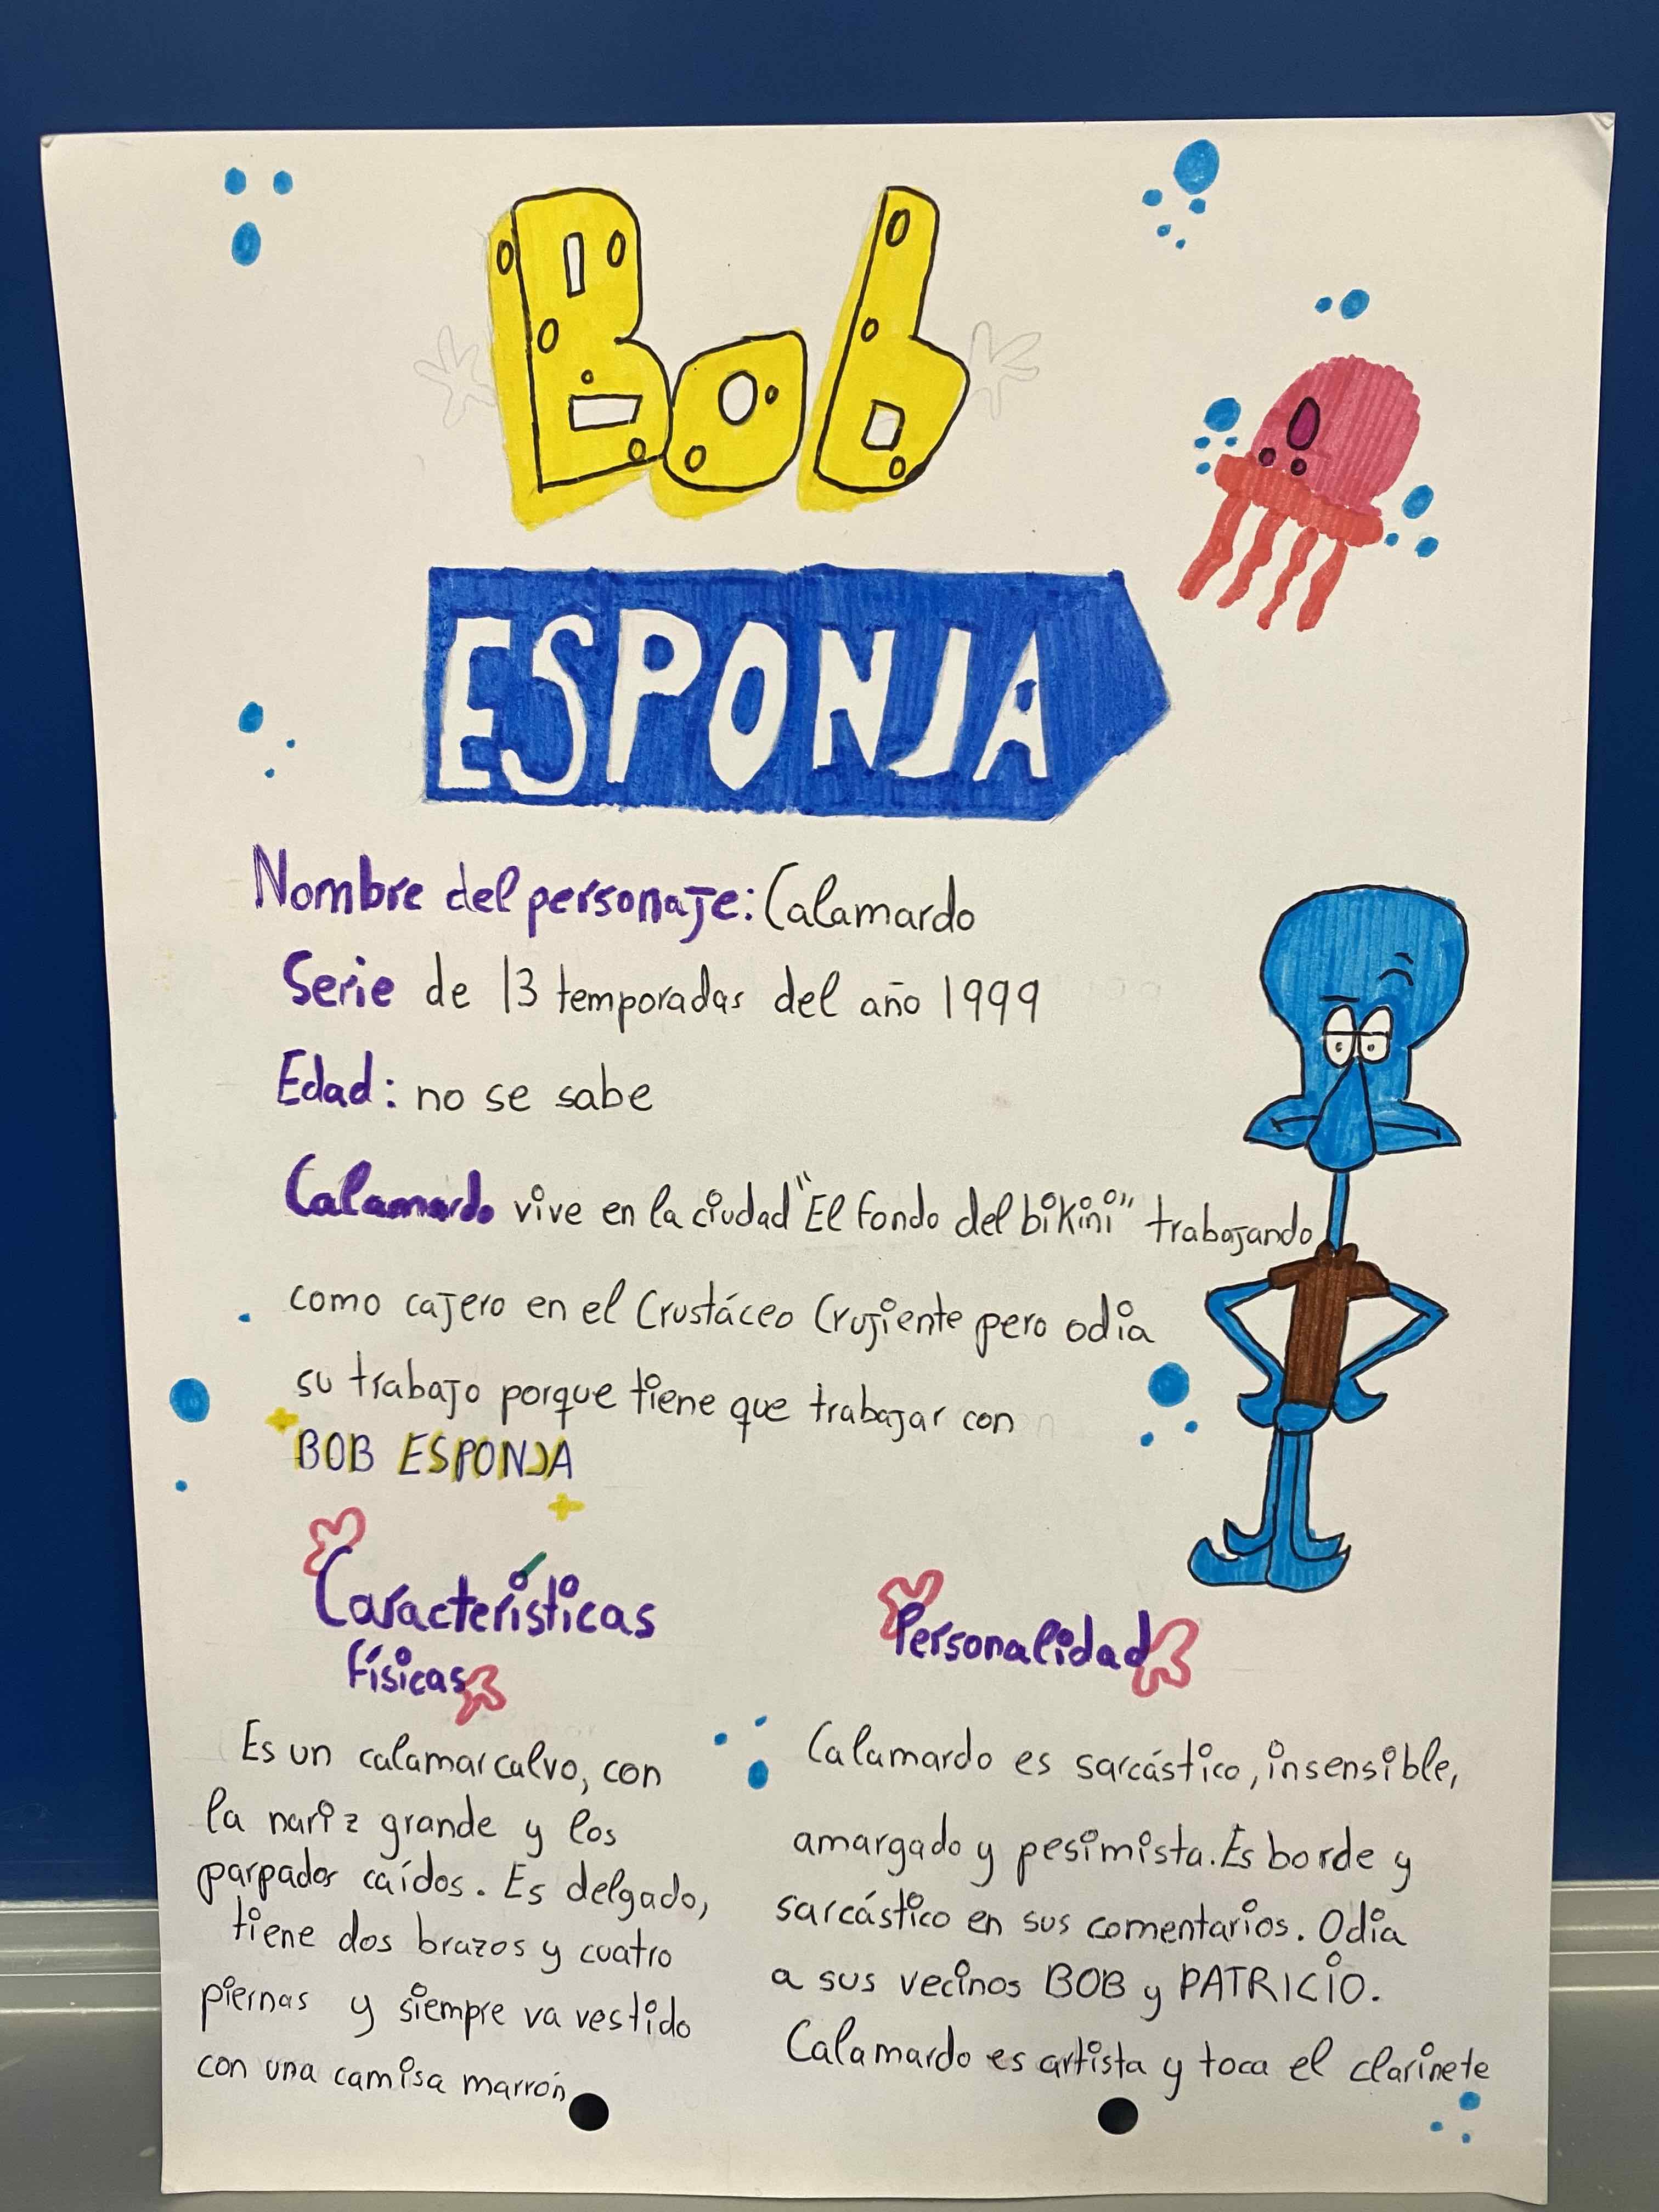 Bob
ESPONJA
Nombre del personaje: Calamardo
Serie de 13 temporadas del año 1999
Edad: no se sabe
Calamardo vive en la ciudad "El fondo del bikini" trabajando
como cajero en el Crustáceo Crujiente pero odia
su trabajo porque tiene que trabajar con
BOB ESPONJA
Características
físicas
Es un calamar calvo, con
la nariz grande y los
parpados caídos. Es delgado,
tiene dos brazos y cuatro
piernas y siempre va vestido
con una camisa marrón
Personalidad
Calamardo es sarcástico, insensible,
amargado y pesimista. Es borde y
sarcástico en sus comentarios. Odia
a sus vecinos BOB y PATRICIO.
Calamardo es artista y toca el clarinete